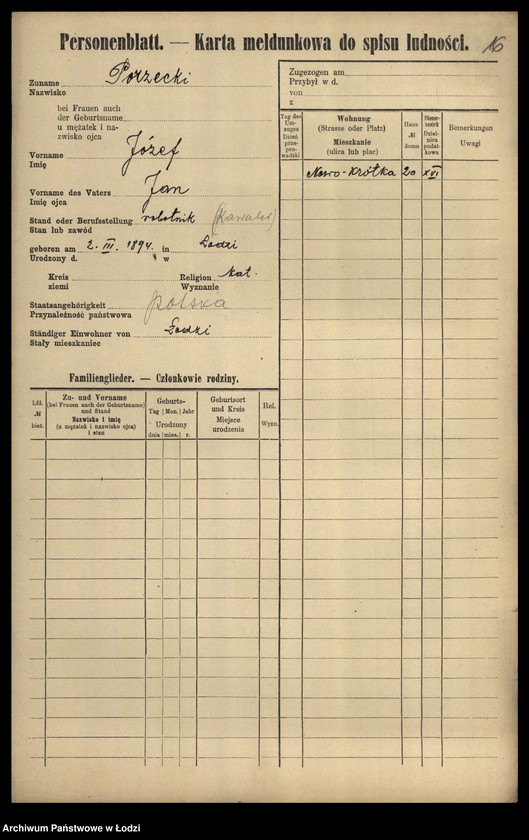 Personenblatt. — Karta meldunkowa do spisu ludności.
16
Zuname Porzecki
Nazwisko
bei Frauen auch
der Geburtsname
u mężatek i na-
zwisko ojca
Vorname Józef
Imię
Vorname des Vaters Jan
Imię ojca
Stand oder Berufsstellung robotnik (Kawaler)
Stan lub zawód
geboren am 2. III. 1894. in Łodzi
Urodzony d. w
Kreis
ziemi
Religion kat.
Wyznanie
Staatsangehörigkeit polska
Przynależność państwowa
Ständiger Einwohner von Łodzi
Stały mieszkaniec
Zugezogen am
Przybył w d.
von
z
Tag des
Um-
zuges
Dzień
prze-
pro-
wadzki
Wohnung
(Strasse oder Platz)
Mieszkanie
(ulica lub plac)
Haus-
№
domu
Steuer-
bezirk
Dziel-
nica
podat-
kowa
Bemerkungen
Uwagi
Nowo-Krótka 20 XVI
Familienglieder. — Członkowie rodziny.
Lfd.
№
bież.
Zu- und Vorname
(bei Frauen auch der Geburtsname)
und Stand
Nazwisko i imię
(u mężatek i nazwisko ojca)
i stan
Geburts-
Tag Mon. Jahr
Urodzony
dnia mies. r.
Geburtsort
und Kreis
Miejsce
urodzenia
Rel.
Wyzn.
Archiwum Państwowe w Łodzi